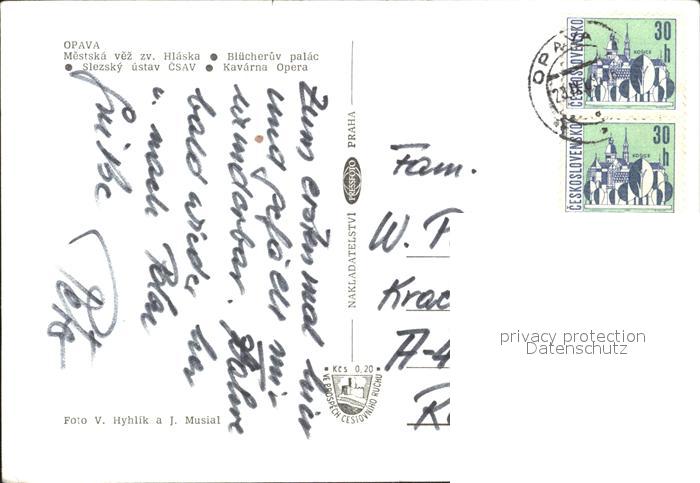 OPAVA
Městská věž zv. Hláska ● Blücherův palác
● Slezský ústav ČSAV ● Kavárna Opera
Zum ersten mal hier
und gefällt mir
wunderbar. Fahre
bald wieder
u. nach Polen
Grüße
Foto V. Hyhlík a J. Musial
NAKLADATELSTVÍ PRESSFOTO PRAHA
Kčs 0,20
VE PROSPĚCH CESTOVNÍHO RUCHU
OPAVA
ČESKOSLOVENSKO
30 h
KOŠICE
ČESKOSLOVENSKO
30 h
KOŠICE
Fam.
W.
Krac
A-4
privacy protection
Datenschutz